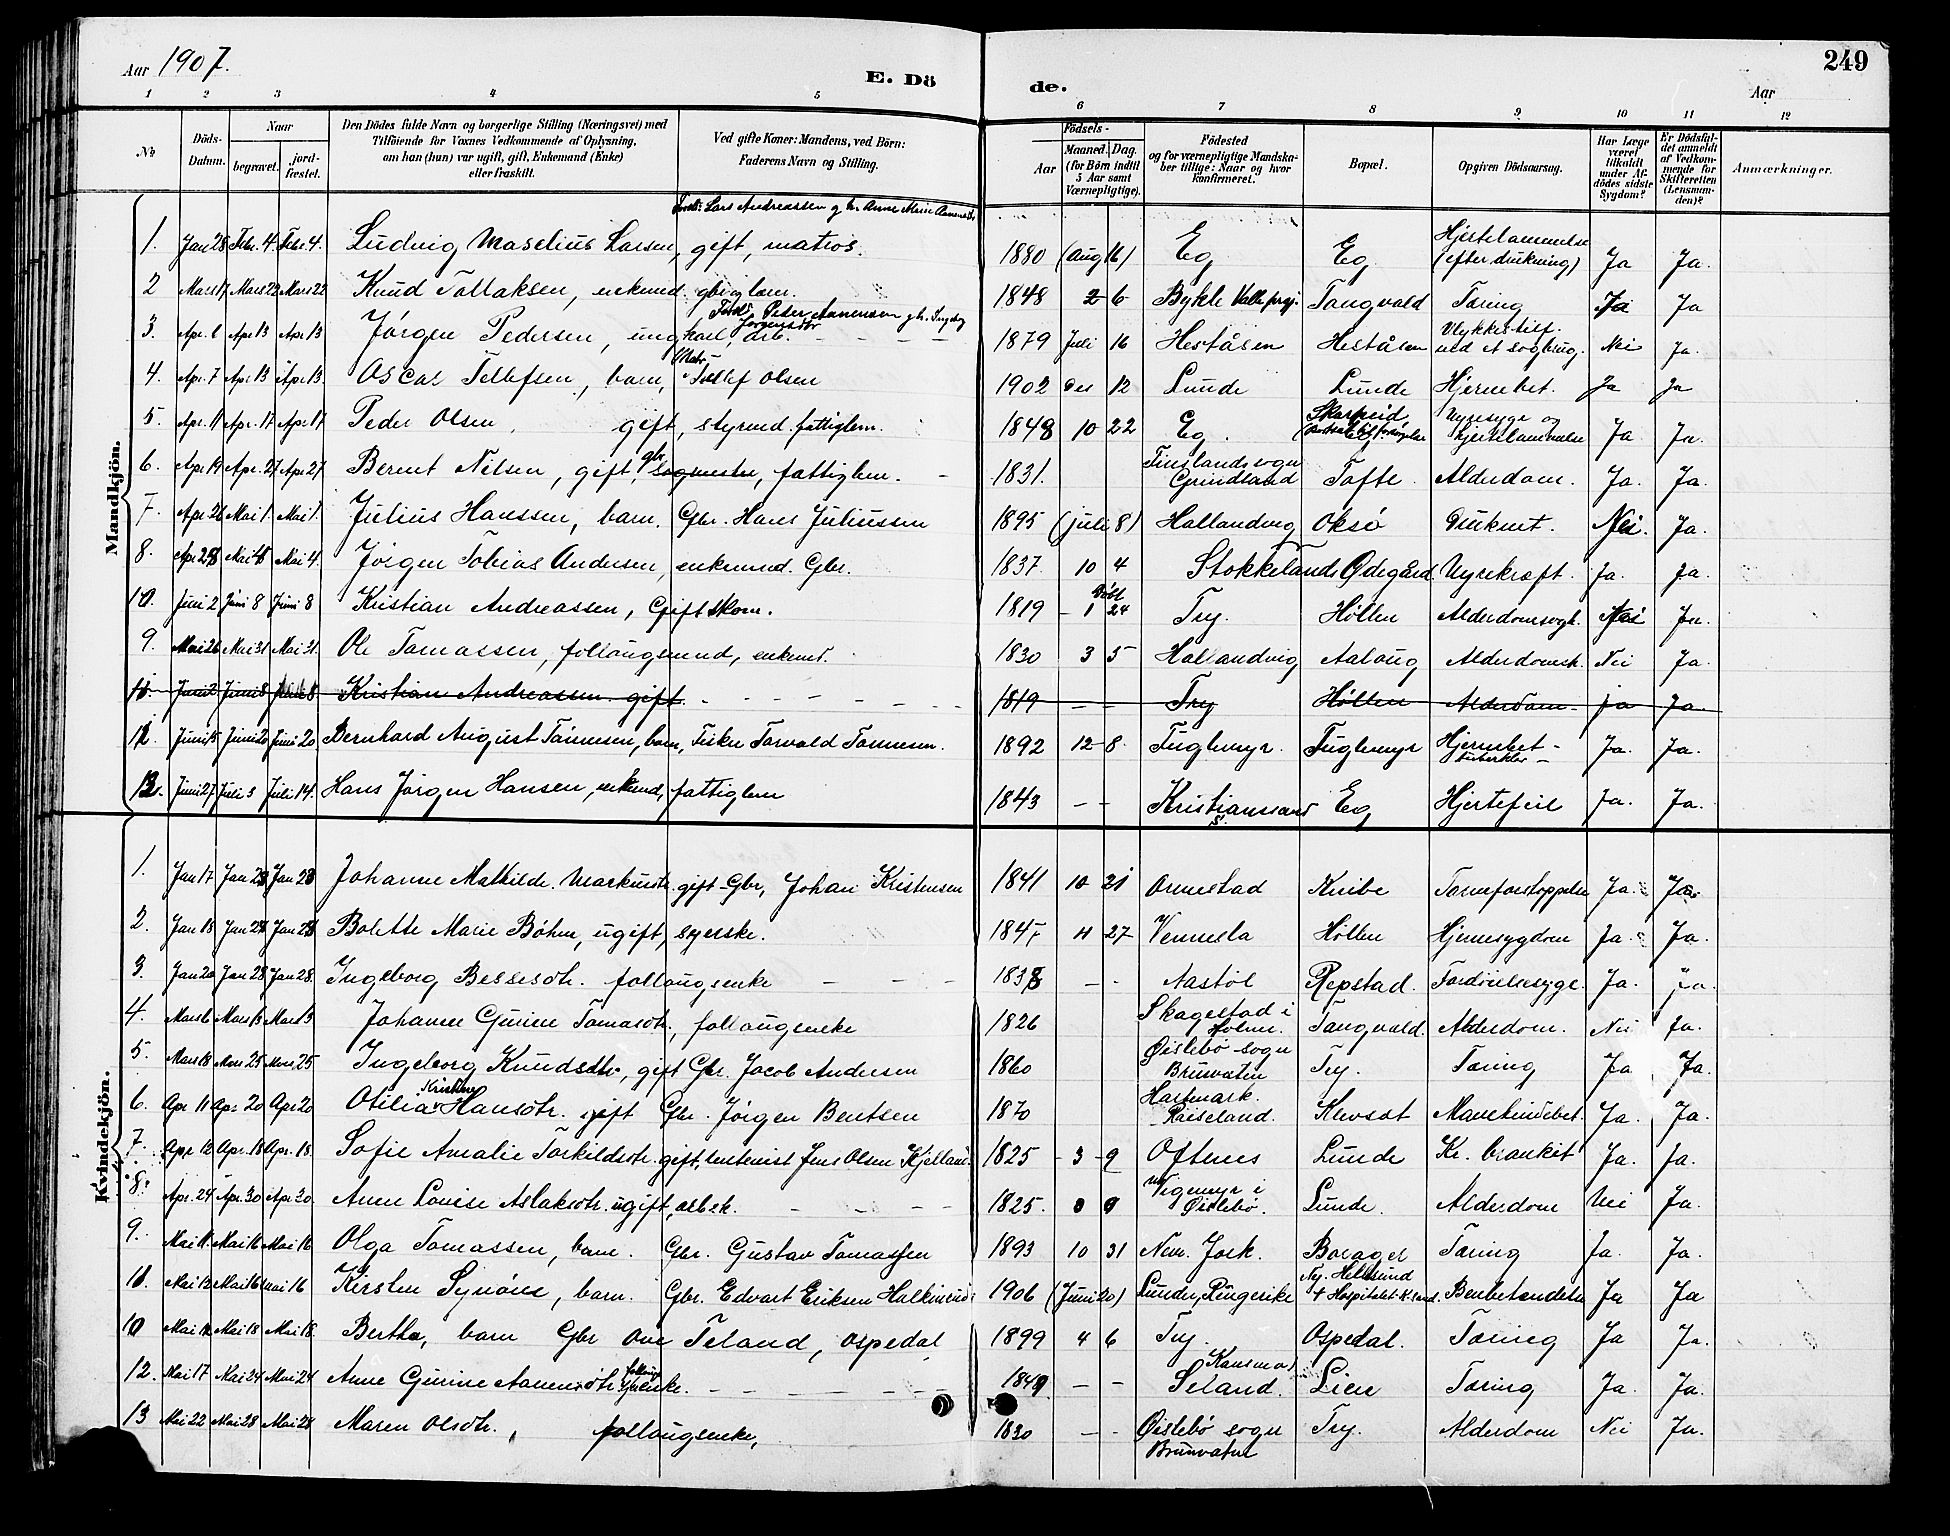 249
Aar 1907.
E. Dö de.
Aar
1 2 3 4 5 6 7 8 9 10 11 12
№
Döds-Datum.
Naar
begravet.
jord-fæstet.
Den Dödes fulde Navn og borgerlige Stilling (Næringsvei) med
Tilföiende for Voxnes Vedkommende af Oplysning,
om han (hun) var ugift, gift, Enkemand (Enke)
eller fraskilt.
Ved gifte Koner: Mandens, ved Börn:
Faderens Navn og Stilling.
Födsels-
Aar
Maaned. Dag.
(for Børn indtil
5 Aar samt
Værnepligtige).
Födested
og for værnepligtige Mandska-
ber tillige: Naar og hvor
konfirmeret.
Bopæl.
Opgiven Dödsaarsag.
Har Læge
været
tilkaldt
under Af-
dødes sidste
Sygdom?
Er Dödsfal-
det anmeldt
af Vedkom-
mende for
Skifteretten
(Lensman-
den)?
Anmærkninger.
Mandkjön.
Lars Andreassen og h. Anne Marie
1. Jan 28 Febr. 4. Febr. 4. Ludvig Maselius Larsen, gift, matros. 1880 (Aug 16) Eg Eg Hjertelammelse (efter drukning) Ja Ja.
2 Mars 17 Mars 22 Mars 22 Knud Tallaksen, enkemd. 1848 2 6 Bykle Valle prgj. Tangvald Tæring Ja Ja
Peder Aanensen g. h. Ingeborg Jørgensdtr
3. Apr. 6 Apr 13 Apr 13 Jörgen Pedersen, ungkarl, arb. 1879 Juli 16 Heståsen Heståsen Ulykkestilf. ved et sagbrug. Nei Ja.
4. Apr. 7 Apr 13 Apr 13. Oscar Tellefsen, barn, Matr. Tellef Olsen 1902 Des 12 Lunde Lunde Hjernebet. Ja Ja
5. Apr. 11 Apr. 17 Apr 17 Peder Olsen, gift, styrmd. fattiglem. 1848 10 22 Eg. Skarpeid Nyresyge og hjertelammelse Ja Ja.
6. Apr 19 Apr. 27 Apr 27 Berent Nilsen, gift, gbr. sagmester, fattiglem. 1831. Finslands sogn Grindland Tofte. Alderdom. Ja. Ja.
7. Apr 26 Mai 1. Mai 1. Julius Hanssen, barn. Gbr. Hans Juliussen 1895 (juli 8) Hallandvig Oksö Druknet. Nei. Ja.
8. Apr 28 Mai 4 Mai 4. Jörgen Tobias Andersen, enkemd. Gbr. 1837. 10 4 Stokkelands Ødegård. Nyrekræft. Ja. Ja.
10. Juni 2 Juni 8 Juni 8 Kristian Andreassen, Gift skom. 1819 Døbt 1 24 Try. Höllen Alderdomssvagh. Nei Ja.
9. Mai 26 Mai 31 Mai 31. Ole Tomassen, follaugsmand, enkemd. 1830 3 5 Hallandvig Aalaug Alderdomssk. Nei Ja.
11. Juni 2 Juni 8 Juni 8. Kristian Andreassen gift. 1819 Try Höllen Alderdom ja Ja.
12. Juni 15 Juni 20 Juni 20 Bernhard August Tønnesen, barn, Fisker Torvald Tønnesen. 1892 12 8. Fuglemyr. Fuglemyr Hjernebet- tuberkler Ja. Ja.
13. Juni 27 Juli 3 Juli 14. Hans Jørgen Hansen, enkemd, fattiglem 1843 Kristianssand S. Eg Hjertefeil Ja. Ja.
Kvindekjön.
1. Jan 17 Jan 23 Jan 23 Johanne Mathilde Markusdtr. gift Gbr, Johan Kristensen 1841 10 21 Ormestad Knibe Tarmeforstoppelse Ja. Ja.
2. Jan 18 Jan 28 Jan 28 Bolette Marie Böhm, ugift, syerske. 1845 11 27 Vennesla Höllen Hjernesygdom Ja. Ja.
3. Jan 20 Jan 28 Jan 28. Ingeborg Bessesdtr. follaugsenke 1838 Aastöl Repstad. Fordöielsessyge. Ja. Ja.
4. Mars 6 Mars 13 Mars 13 Johanne Gurine Tomasdtr., follaugsenke 1826 Skagestad i Holme. Tangvald. Alderdom. Nei Ja.
5. Mars 18 Mars 25 Mars 25 Ingeborg Knudsdtr, gift Gbr. Jacob Andersen 1860 Øislebö sogn Brunvatn Try. Tæring Ja Ja.
6. Apr 11 Apr 20 Apr 20 Otilia Kristine Hansdtr. gift Gbr. Jörgen Bentsen 1870 Hartmark. Røiseland. Klevset Mavekindebet. Ja. Ja.
7. Apr 12 Apr. 18 Apr. 18. Sofie Amalie Torkildsdtr. gift, Jens Olsen Kjelland. 1825 3 9 Oftenes Lunde Kr. bronkit Ja. Ja.
8. Apr. 24 Apr. 30 Apr 30 Anne Lovise Aslaksdtr. ugift, arbek. 1825. 8 9 Vigemyr i Øislebö. Lunde. Alderdom Nei Ja.
9. Mai 11 Mai 16 Mai 16 Olga Tomassen, barn. Gbr. Gustav Tomassen 1893 10 31 New. York. Borager Tæring Ja. Ja.
11. Mai 12 Mai 16 Mai 16 Kirsten Synöve, barn. Gbr. Edvart Eriksen Halkinrud. 1906 (Juni 20) Lunder, Ringerike Ny. Hellesund † Hospitalet K.sand. Benbetændelse Ja Ja
10 Mai 12 Mai 18 Mai 18. Berthe, barn Gbr Ove Teland, Ospedal 1899 4 6 Try. Ospedal. Tæring Ja Ja.
12. Mai 17 Mai 24 Mai 24 Anne Gurine Aanensdtr. follaugsenke. 1849. Seland. Lien Tæring Ja. Ja.
13 Mai 22 Mai 28 Mai 28 Maren Olsdtr., follaugsenke, 1830 Øislebö sogn Brunvatn Try. Alderdom Nei Ja.